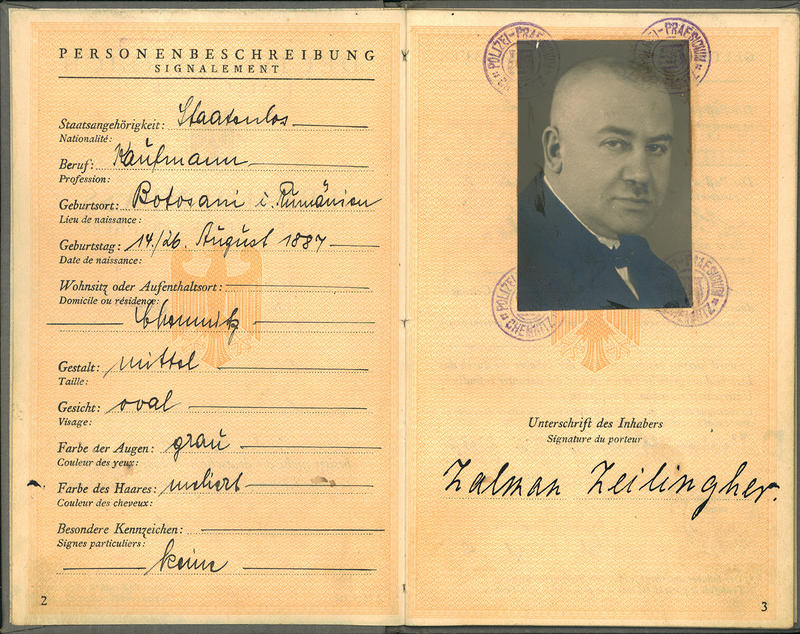 PERSONENBESCHREIBUNG
SIGNALEMENT
Staatsangehörigkeit: Staatenlos
Nationalité:
Beruf: Kaufmann
Profession:
Geburtsort: Botosani i. Rumänien
Lieu de naissance:
Geburtstag: 14./26. August 1887
Date de naissance:
Wohnsitz oder Aufenthaltsort:
Domicile ou résidence:
Chemnitz
Gestalt: mittel
Taille:
Gesicht: oval
Visage:
Farbe der Augen: grau
Couleur des yeux:
Farbe des Haares: meliert
Couleur des cheveux:
Besondere Kennzeichen:
Signes particuliers:
keine
2
POLIZEI-PRAESIDIUM
POLIZEI-PRAESIDIUM
CHEMNITZ
Unterschrift des Inhabers
Signature du porteur
Zalman Zeilingher.
3